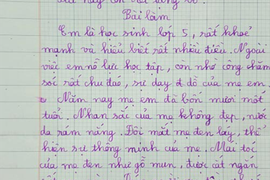 Bài làm
Em là học sinh lớp 5, rất khoẻ
mạnh và hiểu biết rất nhiều điều. Ngoài
việc em nỗ lực học tập, còn nhờ công chăm
sóc rất chu đáo, sự dạy dỗ của mẹ em
Năm nay mẹ em đã bốn mươi một
tuổi. Nhan sắc của mẹ không đẹp, nước
da rám nắng. Đôi mắt mẹ đen láy, thể
hiện sự thông minh của mẹ. Mái tóc
của mẹ đen như gỗ mun, được cắt ngắn